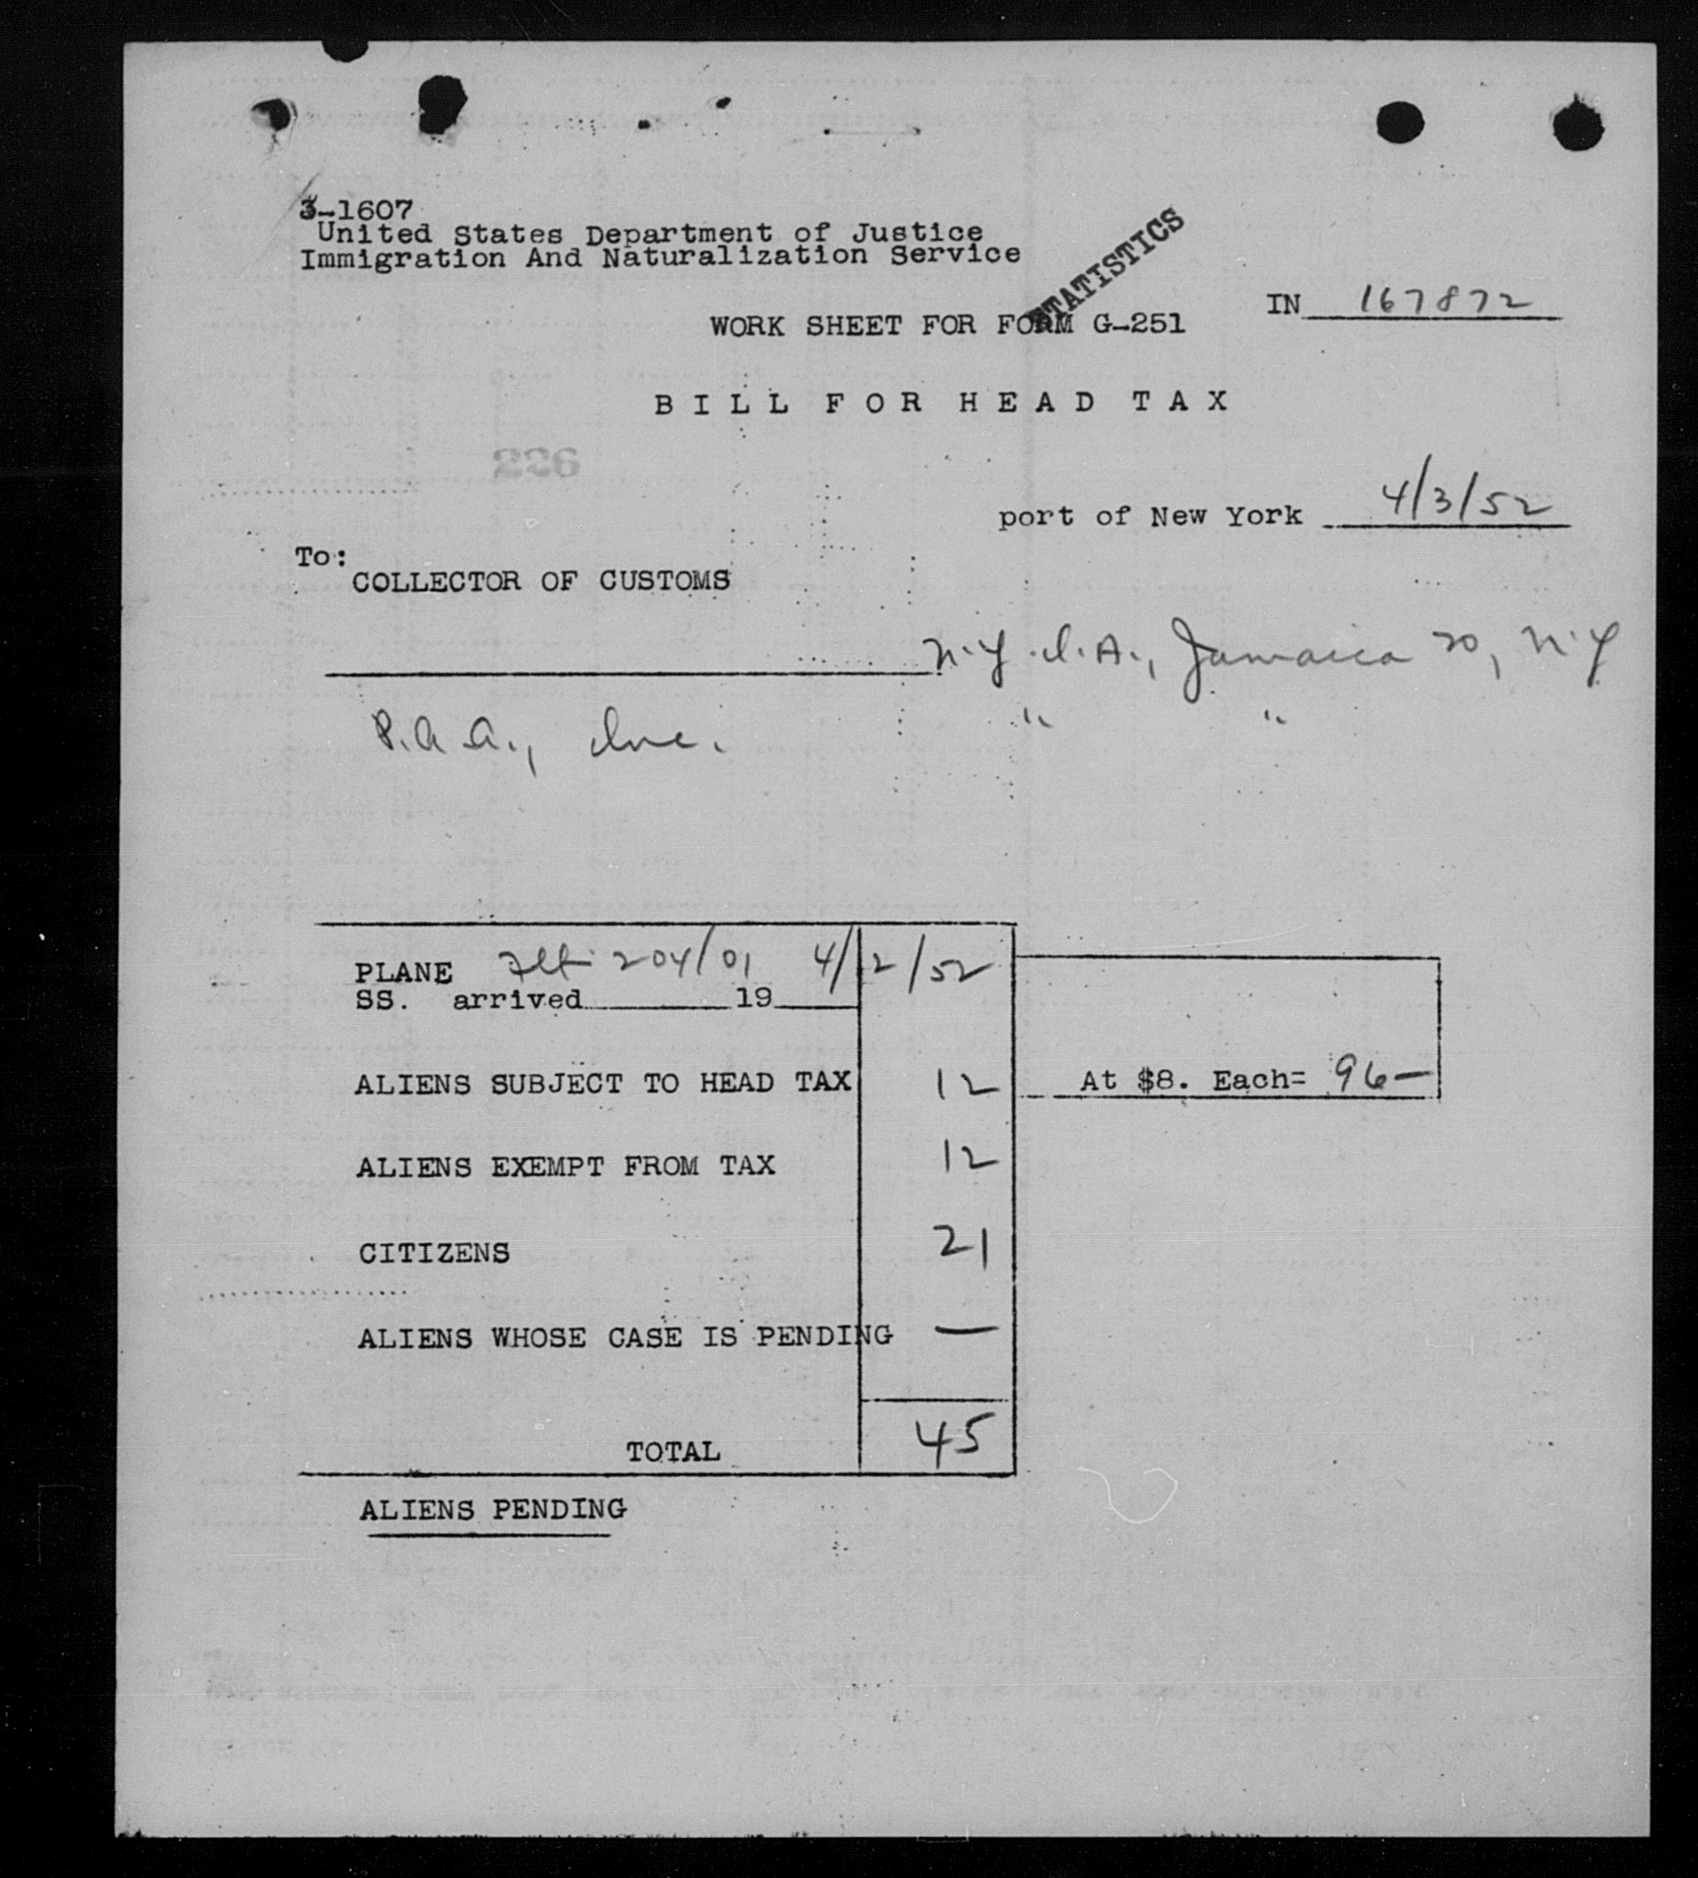 3-1607
United States Department of Justice
Immigration And Naturalization Service
STATISTICS
IN 167872
WORK SHEET FOR FORM G-251
BILL FOR HEAD TAX
226
port of New York 4/3/52
To:
COLLECTOR OF CUSTOMS
N.Y.I.A., Jamaica 20, N.Y
P.A.A., Inc. " "
PLANE Flt 204/01 4/2/52
SS. arrived 19
ALIENS SUBJECT TO HEAD TAX 12 At $8. Each= 96—
ALIENS EXEMPT FROM TAX 12
CITIZENS 21
ALIENS WHOSE CASE IS PENDING —
TOTAL 45
ALIENS PENDING